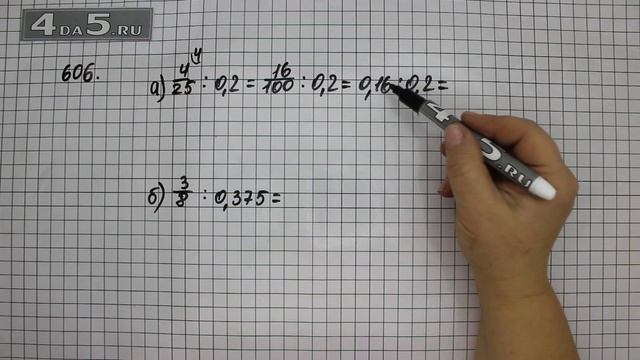 4DA5.RU
606. а) 4/25 ⁴ : 0,2 = 16/100 : 0,2 = 0,16 : 0,2 =
б) 3/8 : 0,375 =
4DA5.RU